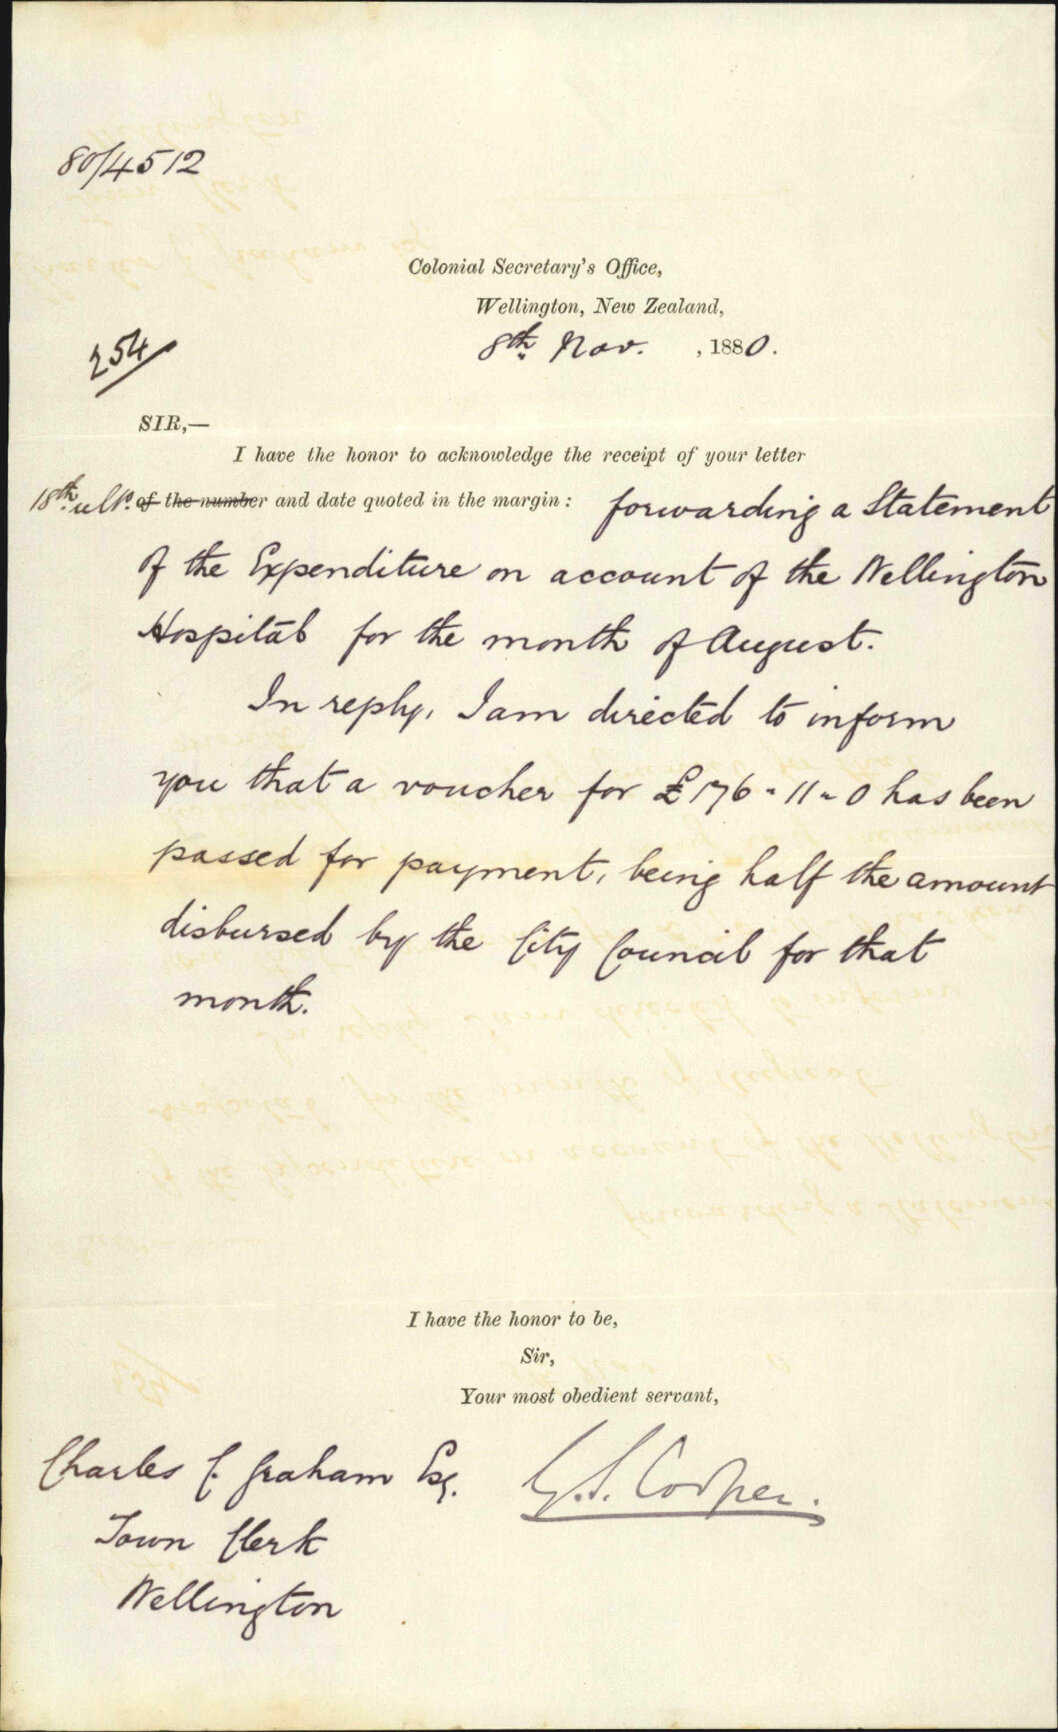 80/4512
Colonial Secretary's Office,
Wellington, New Zealand,
8th Nov. , 1880.
254
SIR,—
I have the honor to acknowledge the receipt of your letter
18th ulto. of the number and date quoted in the margin: forwarding a Statement
of the Expenditure on account of the Wellington
Hospital for the month of August.
In reply, I am directed to inform
you that a voucher for £176-11-0 has been
passed for payment, being half the amount
disbursed by the City Council for that
month.
I have the honor to be,
Sir,
Your most obedient servant,
Charles C. Graham Esq.
G.S. Cooper.
Town Clerk
Wellington